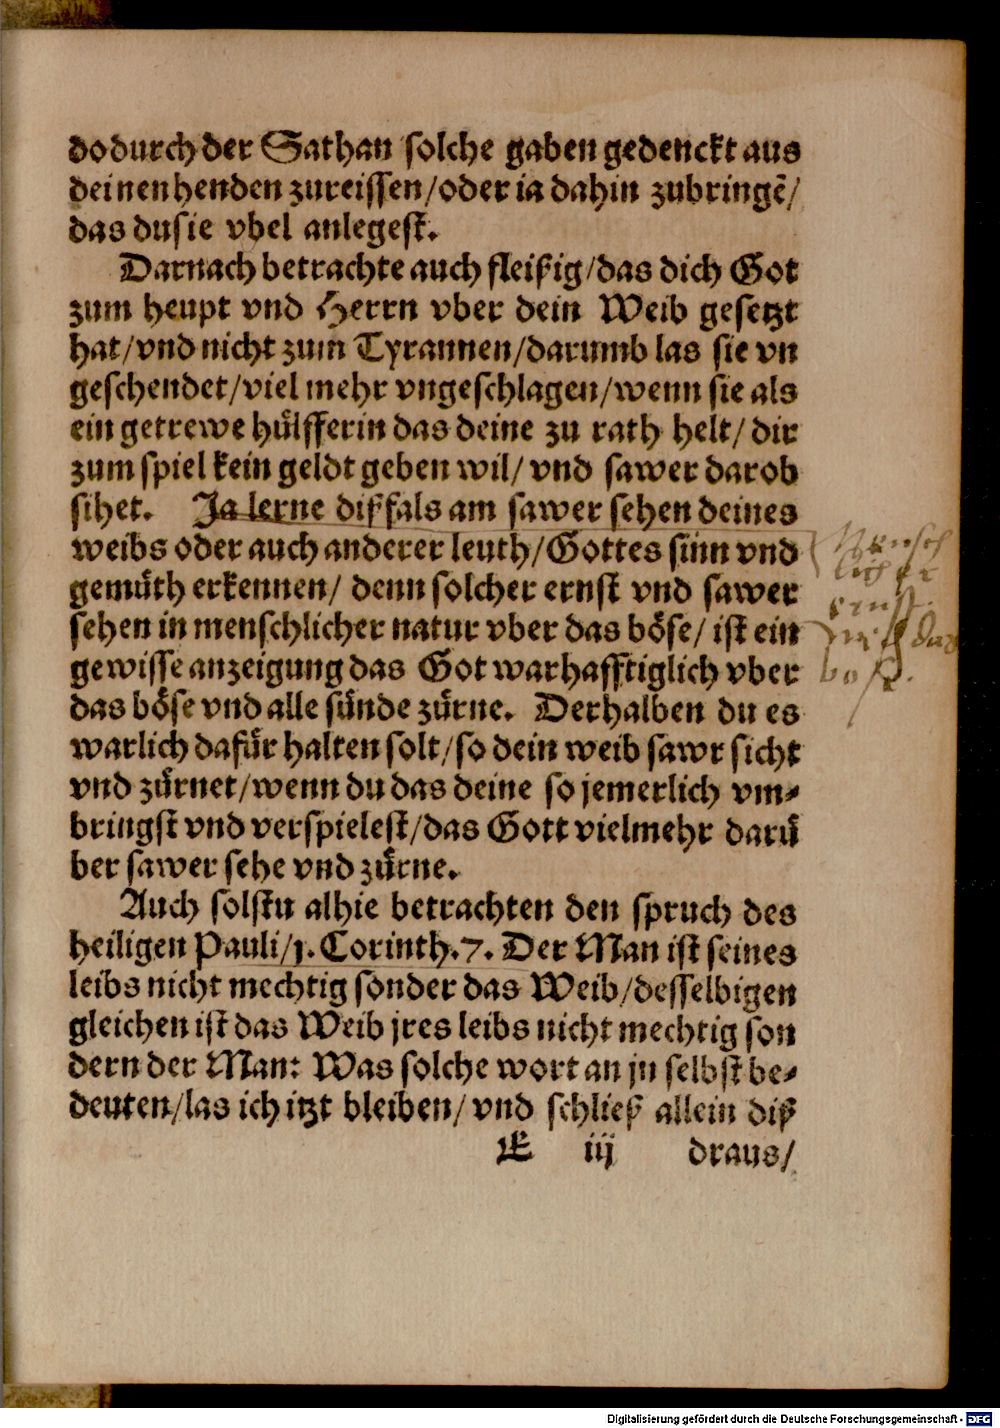 dodurch der Sathan solche gaben gedenckt aus
deinen henden zureissen/oder ia dahin zubringē/
das du sie vbel anlegest.
Darnach betrachte auch fleißig/das dich Got
zum heupt vnd Herrn vber dein Weib gesetzt
hat/vnd nicht zum Tyrannen/darumb las sie vn
geschendet/viel mehr vngeschlagen/wenn sie als
ein getrewe hülfferin das deine zu rath helt/ dir
zum spiel kein geldt geben wil/ vnd sawer darob
sihet. Ja lerne dißfals am sawer sehen deines
weibs oder auch anderer leuth/Gottes sinn vnd
gemüth erkennen/ denn solcher ernst vnd sawer
sehen in menschlicher natur vber das böse/ ist ein
gewisse anzeigung das Got warhafftiglich vber
das böse vnd alle sünde zürne. Derhalben du es
warlich dafür halten solt/so dein weib sawr sicht
vnd zürnet/wenn du das deine so jemerlich vm⸗
bringst vnd verspielest/das Gott vielmehr darü
ber sawer sehe vnd zürne.
Auch solstu alhie betrachten den spruch des
heiligen Pauli/1. Corinth.7. Der Man ist seines
leibs nicht mechtig sonder das Weib/desselbigen
gleichen ist das Weib jres leibs nicht mechtig son
dern der Man: Was solche wort an jn selbst be⸗
deuten/las ich itzt bleiben/ vnd schließ allein diß
E iij draus/
Mensch
licher
ernst
das
bos.
Digitalisierung gefördert durch die Deutsche Forschungsgemeinschaft - DFG